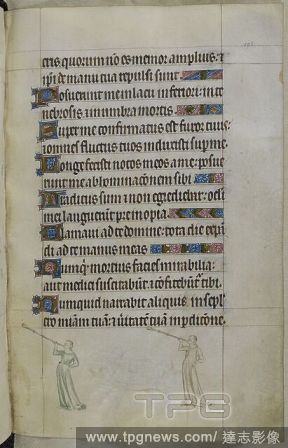 ceris quorum nō es memor amplius: ⁊
ip̄i de manu tua repulsi sunt
Posuerunt me in lacu inferiori: in te
nebrosis ⁊ in umbra mortis.
Super me confirmatus est furor tuus:
⁊ omnes fluctus tuos induxisti sup me.
Longe fecisti notos meos a me: posue
runt me abhominac̄onem sibi
Traditus sum ⁊ non egrediebar: oculi
mei languerunt pre inopia
Clamaui ad te domine: tota die expā
di ad te manus meas
Nunq̄d mortuis facies mirabilia:
aut medici suscitabūt ⁊ cōfitebūt̄ tibi.
Numquid narrabit aliquis in sepul
cro mīam tuā: ⁊ ueritatē tuā in pdicōne.
TPG
www.tpgnews.com / 達志影像